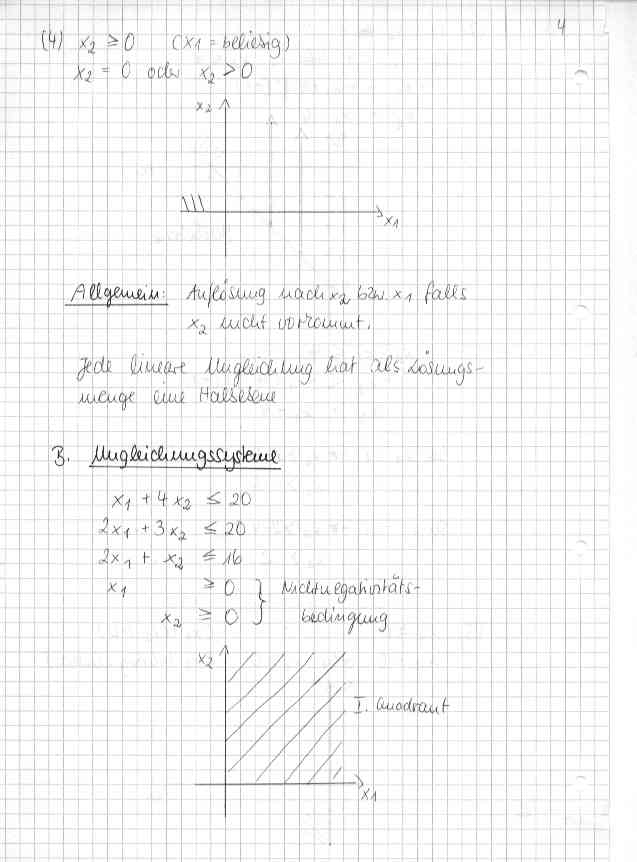 4
(4) x₂ ≥ 0 (x₁ = beliebig)
x₂ = 0 oder x₂ > 0
x₂
x₁
Allgemein: Auflösung nach x₂ bzw. x₁ falls
x₂ nicht vorkommt.
Jede lineare Ungleichung hat als Lösungs-
menge eine Halbebene
B. Ungleichungssysteme
x₁ + 4x₂ ≤ 20
2x₁ + 3x₂ ≤ 20
2x₁ + x₂ ≤ 16
x₁ ≥ 0 } Nichtnegativitäts-
x₂ ≥ 0 bedingung
x₂
I. Quadrant
x₁